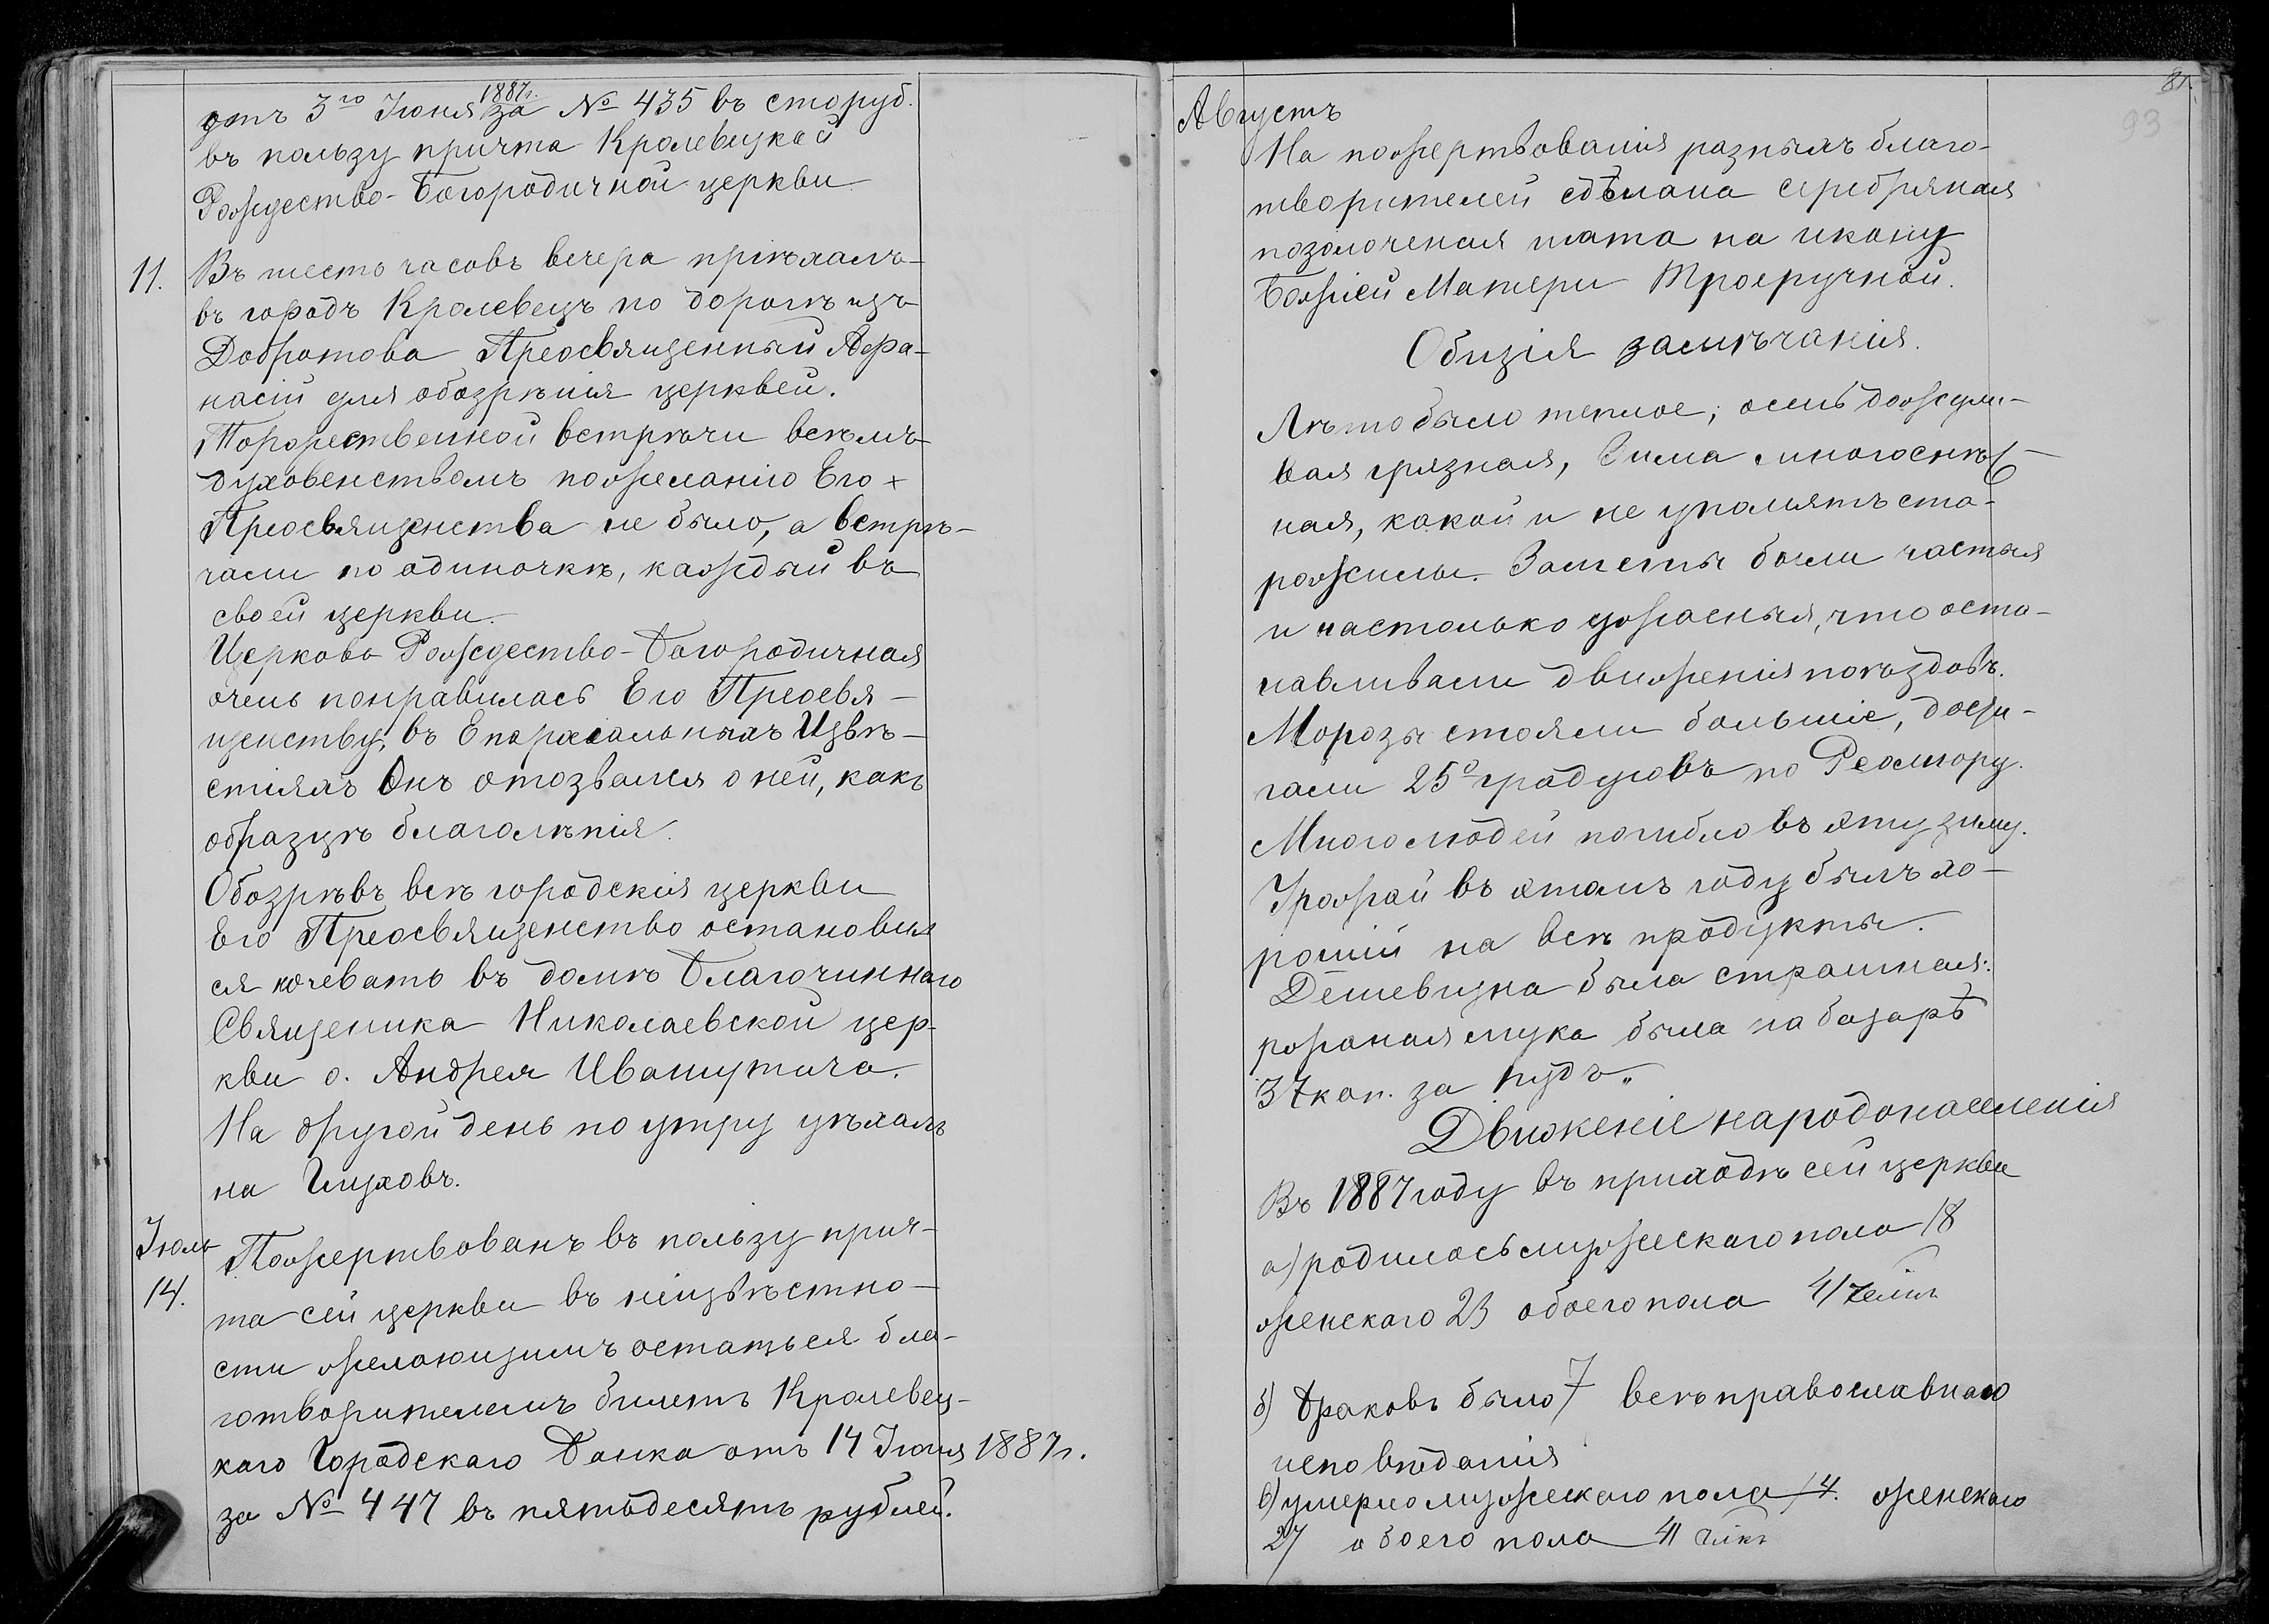 отъ 3го Іюня 1887г. за № 435 въ сто руб.
въ пользу причта Кролевецкой
Рождество-Богородичной церкви
11. Въ шесть часовъ вечера пріѣхалъ
въ городъ Кролевецъ по дорогѣ изъ
Добротова Преосвященный Афа-
насій для обозрѣнія церквей.
Торжественной встрѣчи всѣмъ
духовенствомъ по желанію Его
Преосвященства не было, а встрѣ-
чали по одиночкѣ, каждый въ
своей церкви.
Церковь Рождество-Богородичная
очень понравилась Его Преосвя-
щенству, въ Епархіальныхъ Извѣ-
стіяхъ Онъ отозвался о ней, какъ
образцѣ благолѣпія.
Обозрѣвъ всѣ городскія церкви
Его Преосвященство остановил
ся ночевать въ домѣ Благочиннаго
Священика Николаевской цер-
кви о. Андрея Иванутича.
На другой день по утру уѣхалъ
на Глуховъ.
Іюль
14. Пожертвованъ въ пользу прич-
та сей церкви въ неизвѣстно-
сти желающимъ остаться бла-
готворителемъ билетъ Кролевец-
каго Городскаго Банка отъ 14 Іюля 1887г.
за № 447 въ пятьдесятъ рублей.
81.
93
Августъ
На пожертвованія разныхъ благо-
творителей сдѣлана серебряная
позолоченая шата на икону
Божіей Матери Троеручной.
Общія замѣчанія.
Лѣто было теплое; осень дождли-
вая грязная, Зима многоснѣж-
ная, какой и не упомятъ ста-
рожилы. Заметы были частыя
и настолько ужасныя, что оста-
навливали движенія поѣздовъ.
Морозы стояли большіе, дости-
гали 25° градусовъ по Реомюру.
Много людей погибло въ эту зиму.
Урожай въ этомъ году былъ хо-
рошій на всѣ продукты.
Дешевизна была страшная:
ржаная мука была на базарѣ
37 коп. за пудъ„
Движеніе народонаселенія
Въ 1887 году въ приходѣ сей церкви
а) родилось мужескаго пола 18
женскаго 23 обоего пола 41
б) Браковъ было 7 всѣ православнаго
исповѣданія
в) умерло мужескаго пола 14. женскаго
27 обоего пола 41